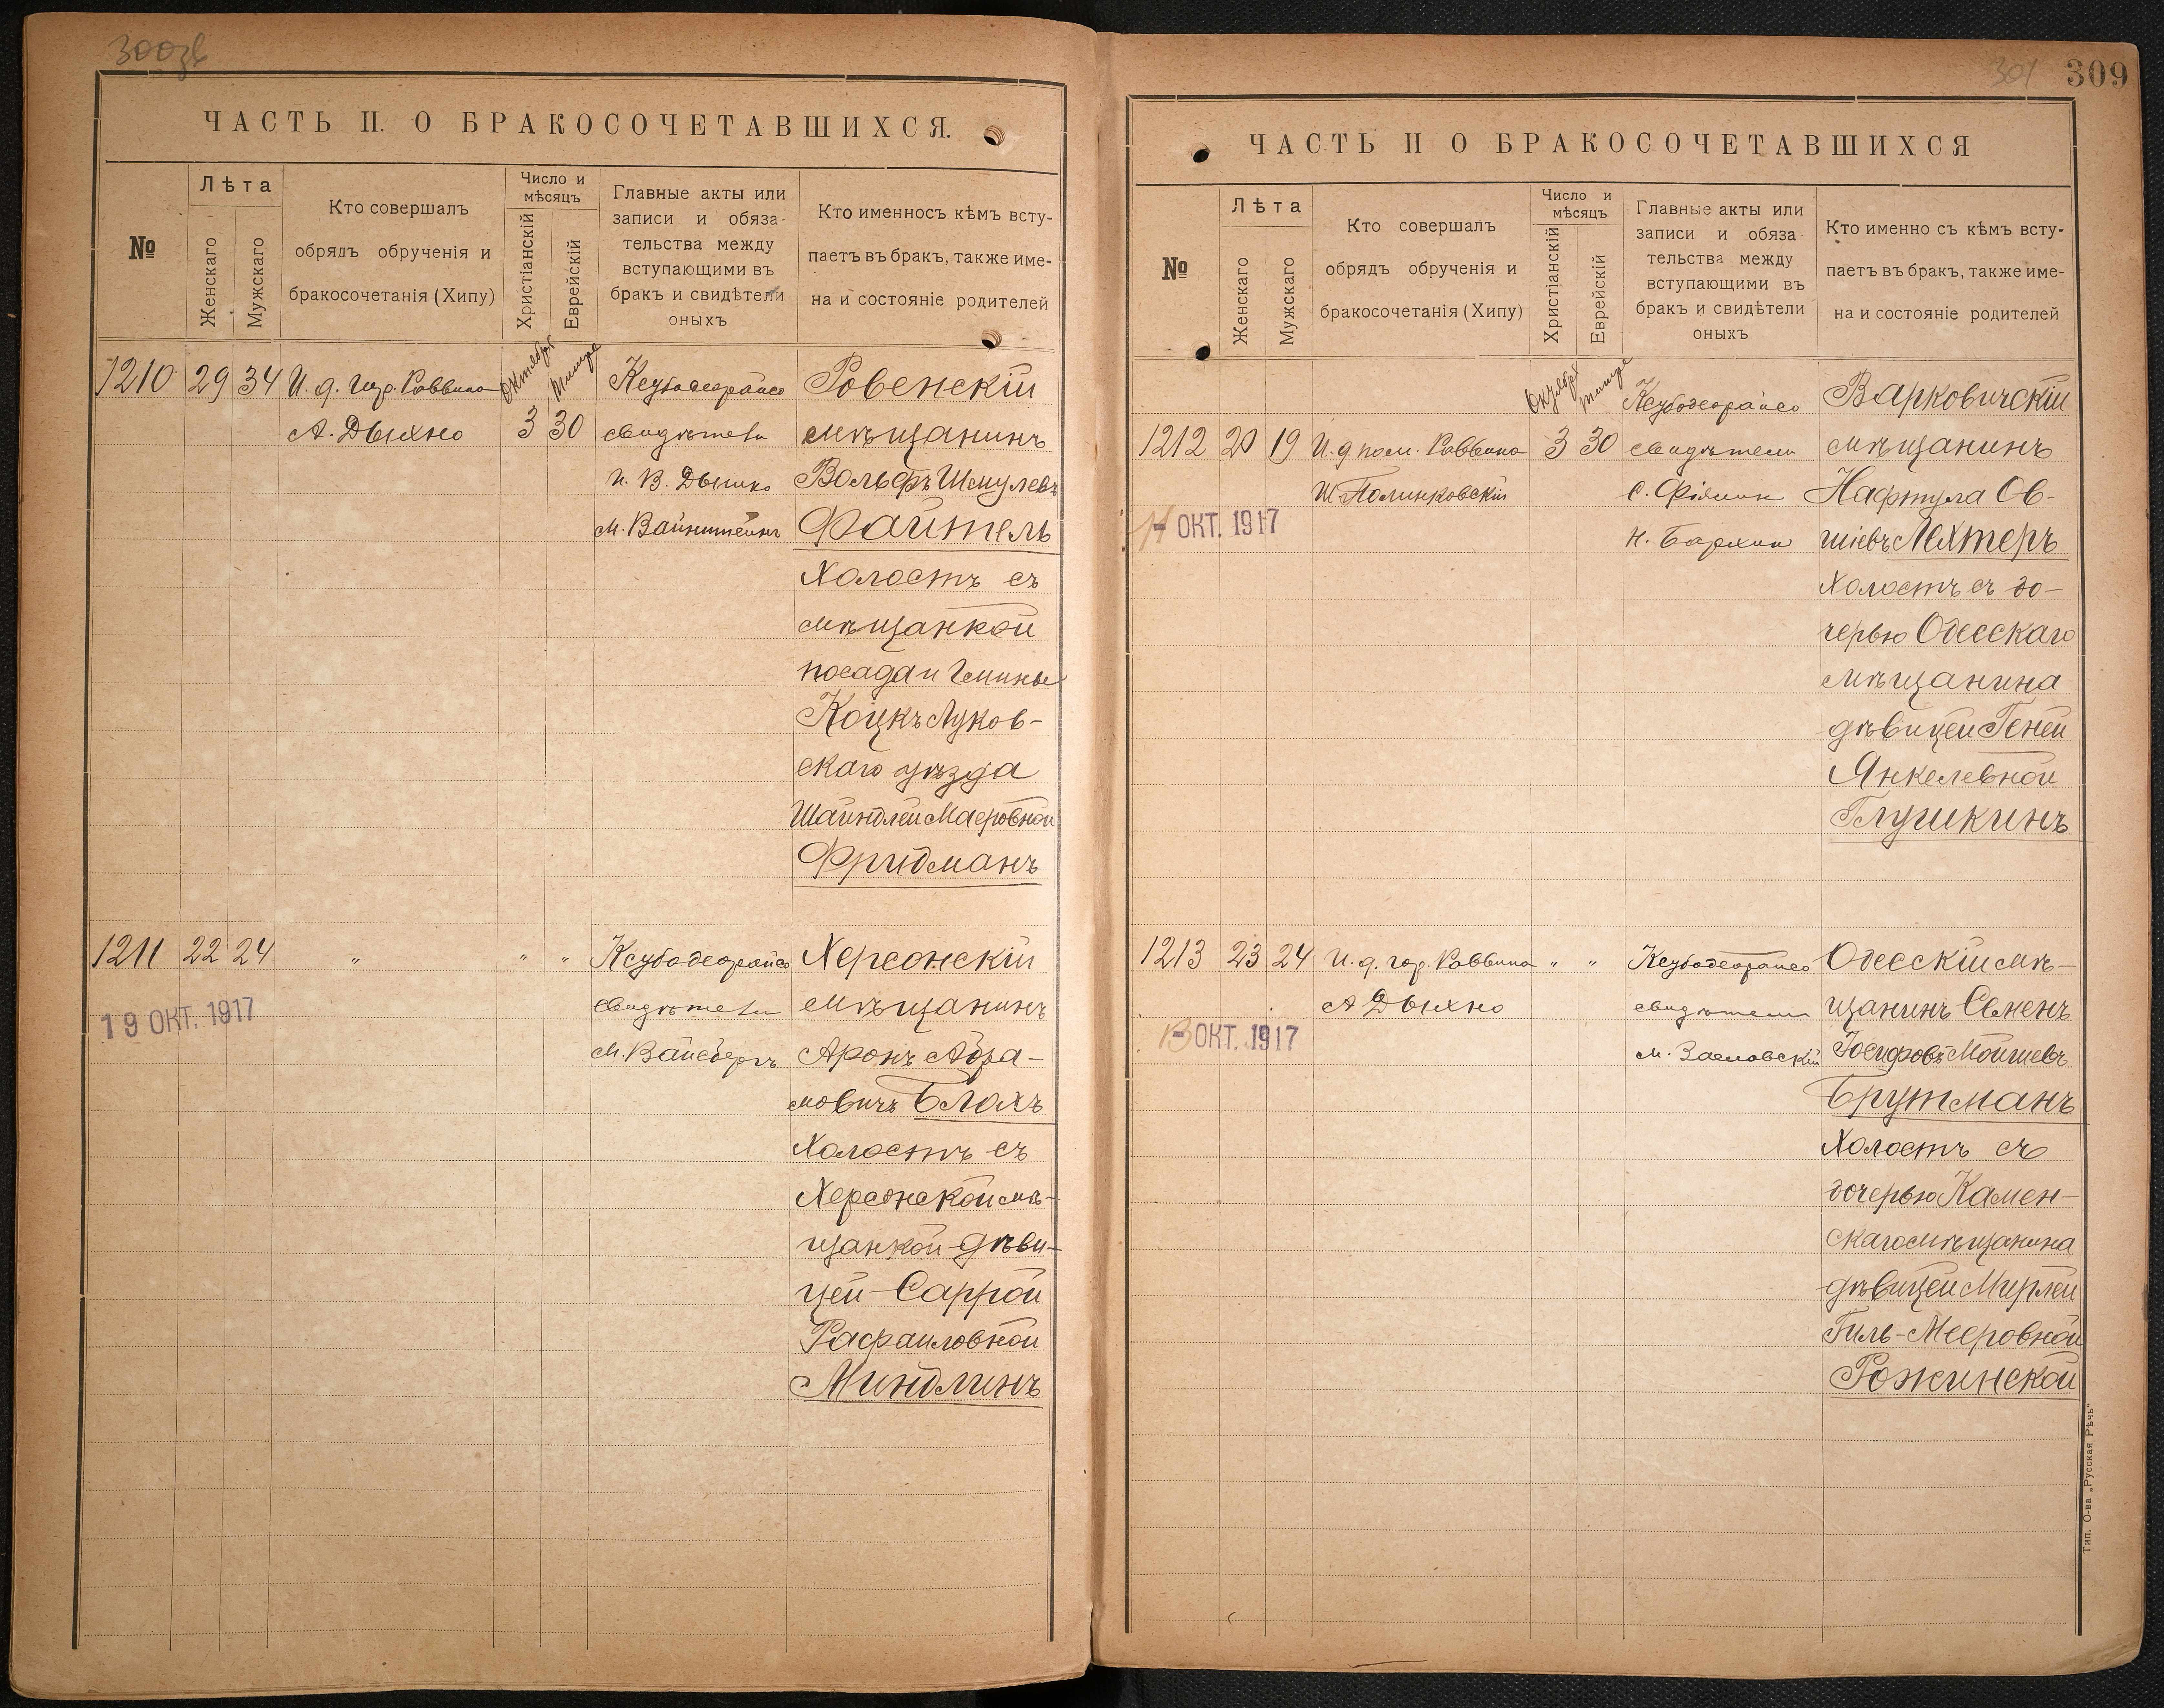 300зв
ЧАСТЬ II. О БРАКОСОЧЕТАВШИХСЯ.
№
Лѣта
Женскаго
Мужскаго
Кто совершалъ
обрядъ обрученія и
бракосочетанія (Хипу)
Число и
мѣсяцъ
Христіанскій
Еврейскій
Главные акты или
записи и обяза-
тельства между
вступающими въ
бракъ и свидѣтели
оныхъ
Кто именносъ кѣмъ всту-
паетъ въ бракъ, также име-
на и состояніе родителей
1210 29 34 И. д. гор. Раввина
А. Дыхно
Октября
3
Тишре
30
свидѣтели
М. Вайнштейнъ
Ровенскій
мѣщанинъ
Вольфъ Шмулевъ
Файтель
Холостъ съ
мѣщанкой
посада и Гмины
Коцкъ Луков-
скаго уѣзда
Шайндлей Маеровной
Фридманъ
1211 22 24 „ „ „
19 ОКТ. 1917
свидѣтели
М. Вайсбергъ
Херсонскій
мѣщанинъ
Аронъ Абра-
мовичъ Блохъ
Холостъ съ
Херсонской мѣ-
щанкой-дѣви-
цей-Саррой
Рафаиловной
Миндлинъ
301 309
ЧАСТЬ II О БРАКОСОЧЕТАВШИХСЯ
№
Лѣта
Женскаго
Мужскаго
Кто совершалъ
обрядъ обрученія и
бракосочетанія (Хипу)
Число и
мѣсяцъ
Христіанскій
Еврейскій
Главные акты или
записи и обяза
тельства между
вступающими въ
бракъ и свидѣтели
оныхъ
Кто именно съ кѣмъ всту-
паетъ въ бракъ, также име-
на и состояніе родителей
1212 20 19 И. д пом. Раввина
Ш. Полинковскій
Октября
3
Тишре
30
ОКТ. 1917
свидѣтели
Варковичскій
мѣщанинъ
Нафтула Ов-
шіевъ Лехтеръ
Холостъ съ до-
черью Одесскаго
мѣщанина
дѣвицей Геней
Янкелевной
Глушкинъ
1213 23 24 И. д. гор. Раввина „ „
А Дыхно
ОКТ. 1917
свидѣтели
М. Заславскій
Одесскій мѣ-
щанинъ
Іосифовъ Мойшевъ
Брутманъ
Холостъ съ
дочерью Камен-
скаго мѣщанина
дѣвицей Мирлей
Гиль-Мееровной
Рожинской
Тип. О-ва „Русская Рѣчь"